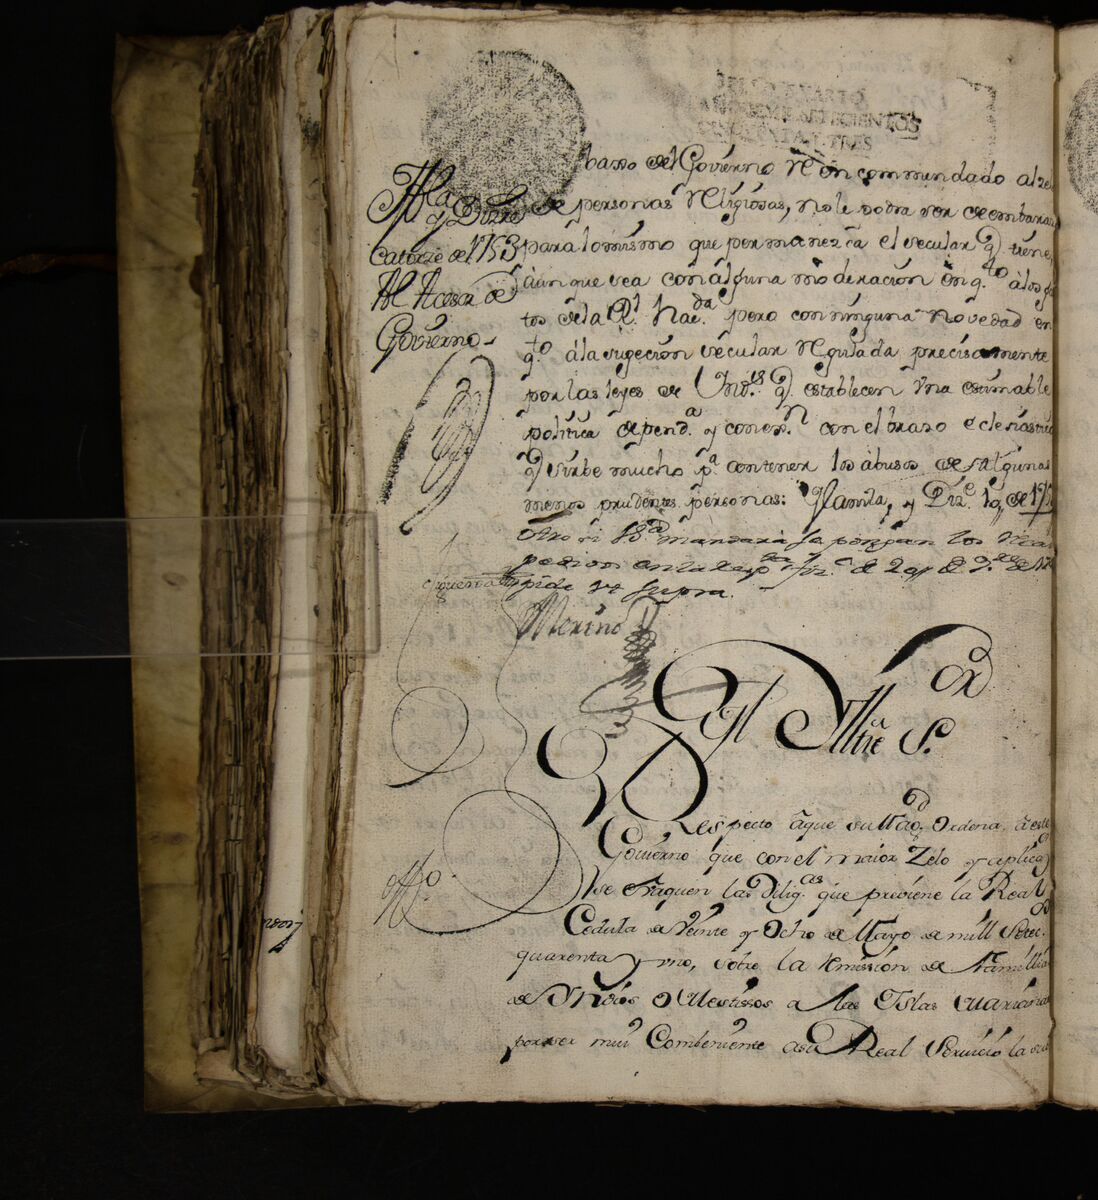 SELLO QUARTO
AÑO DE MIL SETECIENTOS
CINCUENTA Y TRES
Mla
y Dizre
Catorce de 1753
Al Acesor de
Govierno
baxo del Govierno Recomendado al zelo
de personas Religiosas, no le podra ser de embarazo
para lo mismo que permanezca el secular q tiene,
aunque sea con alguna moderacion en q.to à los gas
tos de la Rl. Haz.da pero con ninguna novedad en
q.to à la sugecion secular Regulada precisamente
por las leyes de Ynd.s q. establecen una estimable
politica depend.a y conex.n con el brazo eclesiastico
q sirbe mucho p.a contener los abusos de algunas
menos prudentes personas: Manila, y Diz.e 19 de 17
Otro si VS.a mandara se pongan los
pide ut supra.
Merino
Mui Ill.tre S.or
Respecto aque su Mag.d Ordena, à este
Govierno que con el maior Zelo y aplicaz.n
se saquen las Dilig.cas que previene la Real
Cedula de Veinte y Ocho de Mayo de mill Setec.s
quarenta y uno, sobre la remission de Familias
de Yndios o Mestissos a las Islas Marianas
por ser mui Combeniente asu Real Servicio la